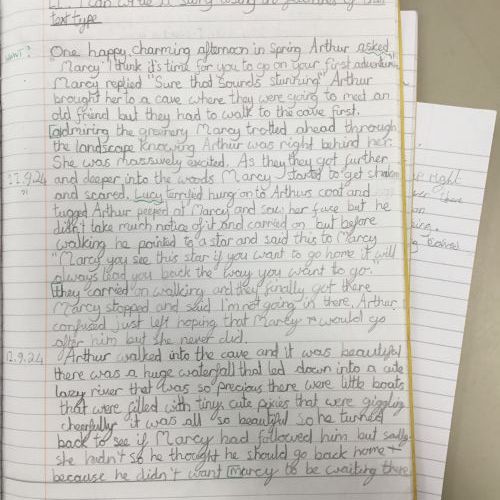 I can write a story using the features of that
text type
WANT?
One happy, charming afternoon in Spring Arthur asked
"Marcy I think it's time for you to go on your first adventure."
Marcy replied "Sure that sounds stunning" Arthur
brought her to a cave where they were going to meet an
old friend but they had to walk to the cave first.
admiring the greenery Marcy trotted ahead through
the landscape knowing Arthur was right behind her.
She was massively excited. As they they got further
12.9.24 and deeper into the woods Marcy started to get shaken
and scared. Lucy terrified hung on to Arthurs coat and
tugged Arthur peeped at Marcy and saw her face but he
didn't take much notice of it and carried on but before
walking he pointed to a star and said this to Marcy
"Marcy you see this star if you want to go home it will
always lead you back the way you want to go."
they carried on walking and they finally got there
Marcy stopped and said I'm not going in there. Arthur
confused just left hoping that Marcy would go
after him but she never did.
12.9.24 Arthur walked into the cave and it was beautiful
there was a huge waterfall that led down into a cute
lazy river that was so precious there were little boats
that were filled with tiny, cute pixies that were giggling
cheerfully it was all so beautiful so he turned
back to see if Marcy had followed him but sadly
she hadn't so he thought he should go back home
because he didn't want marcy to be waiting there
right